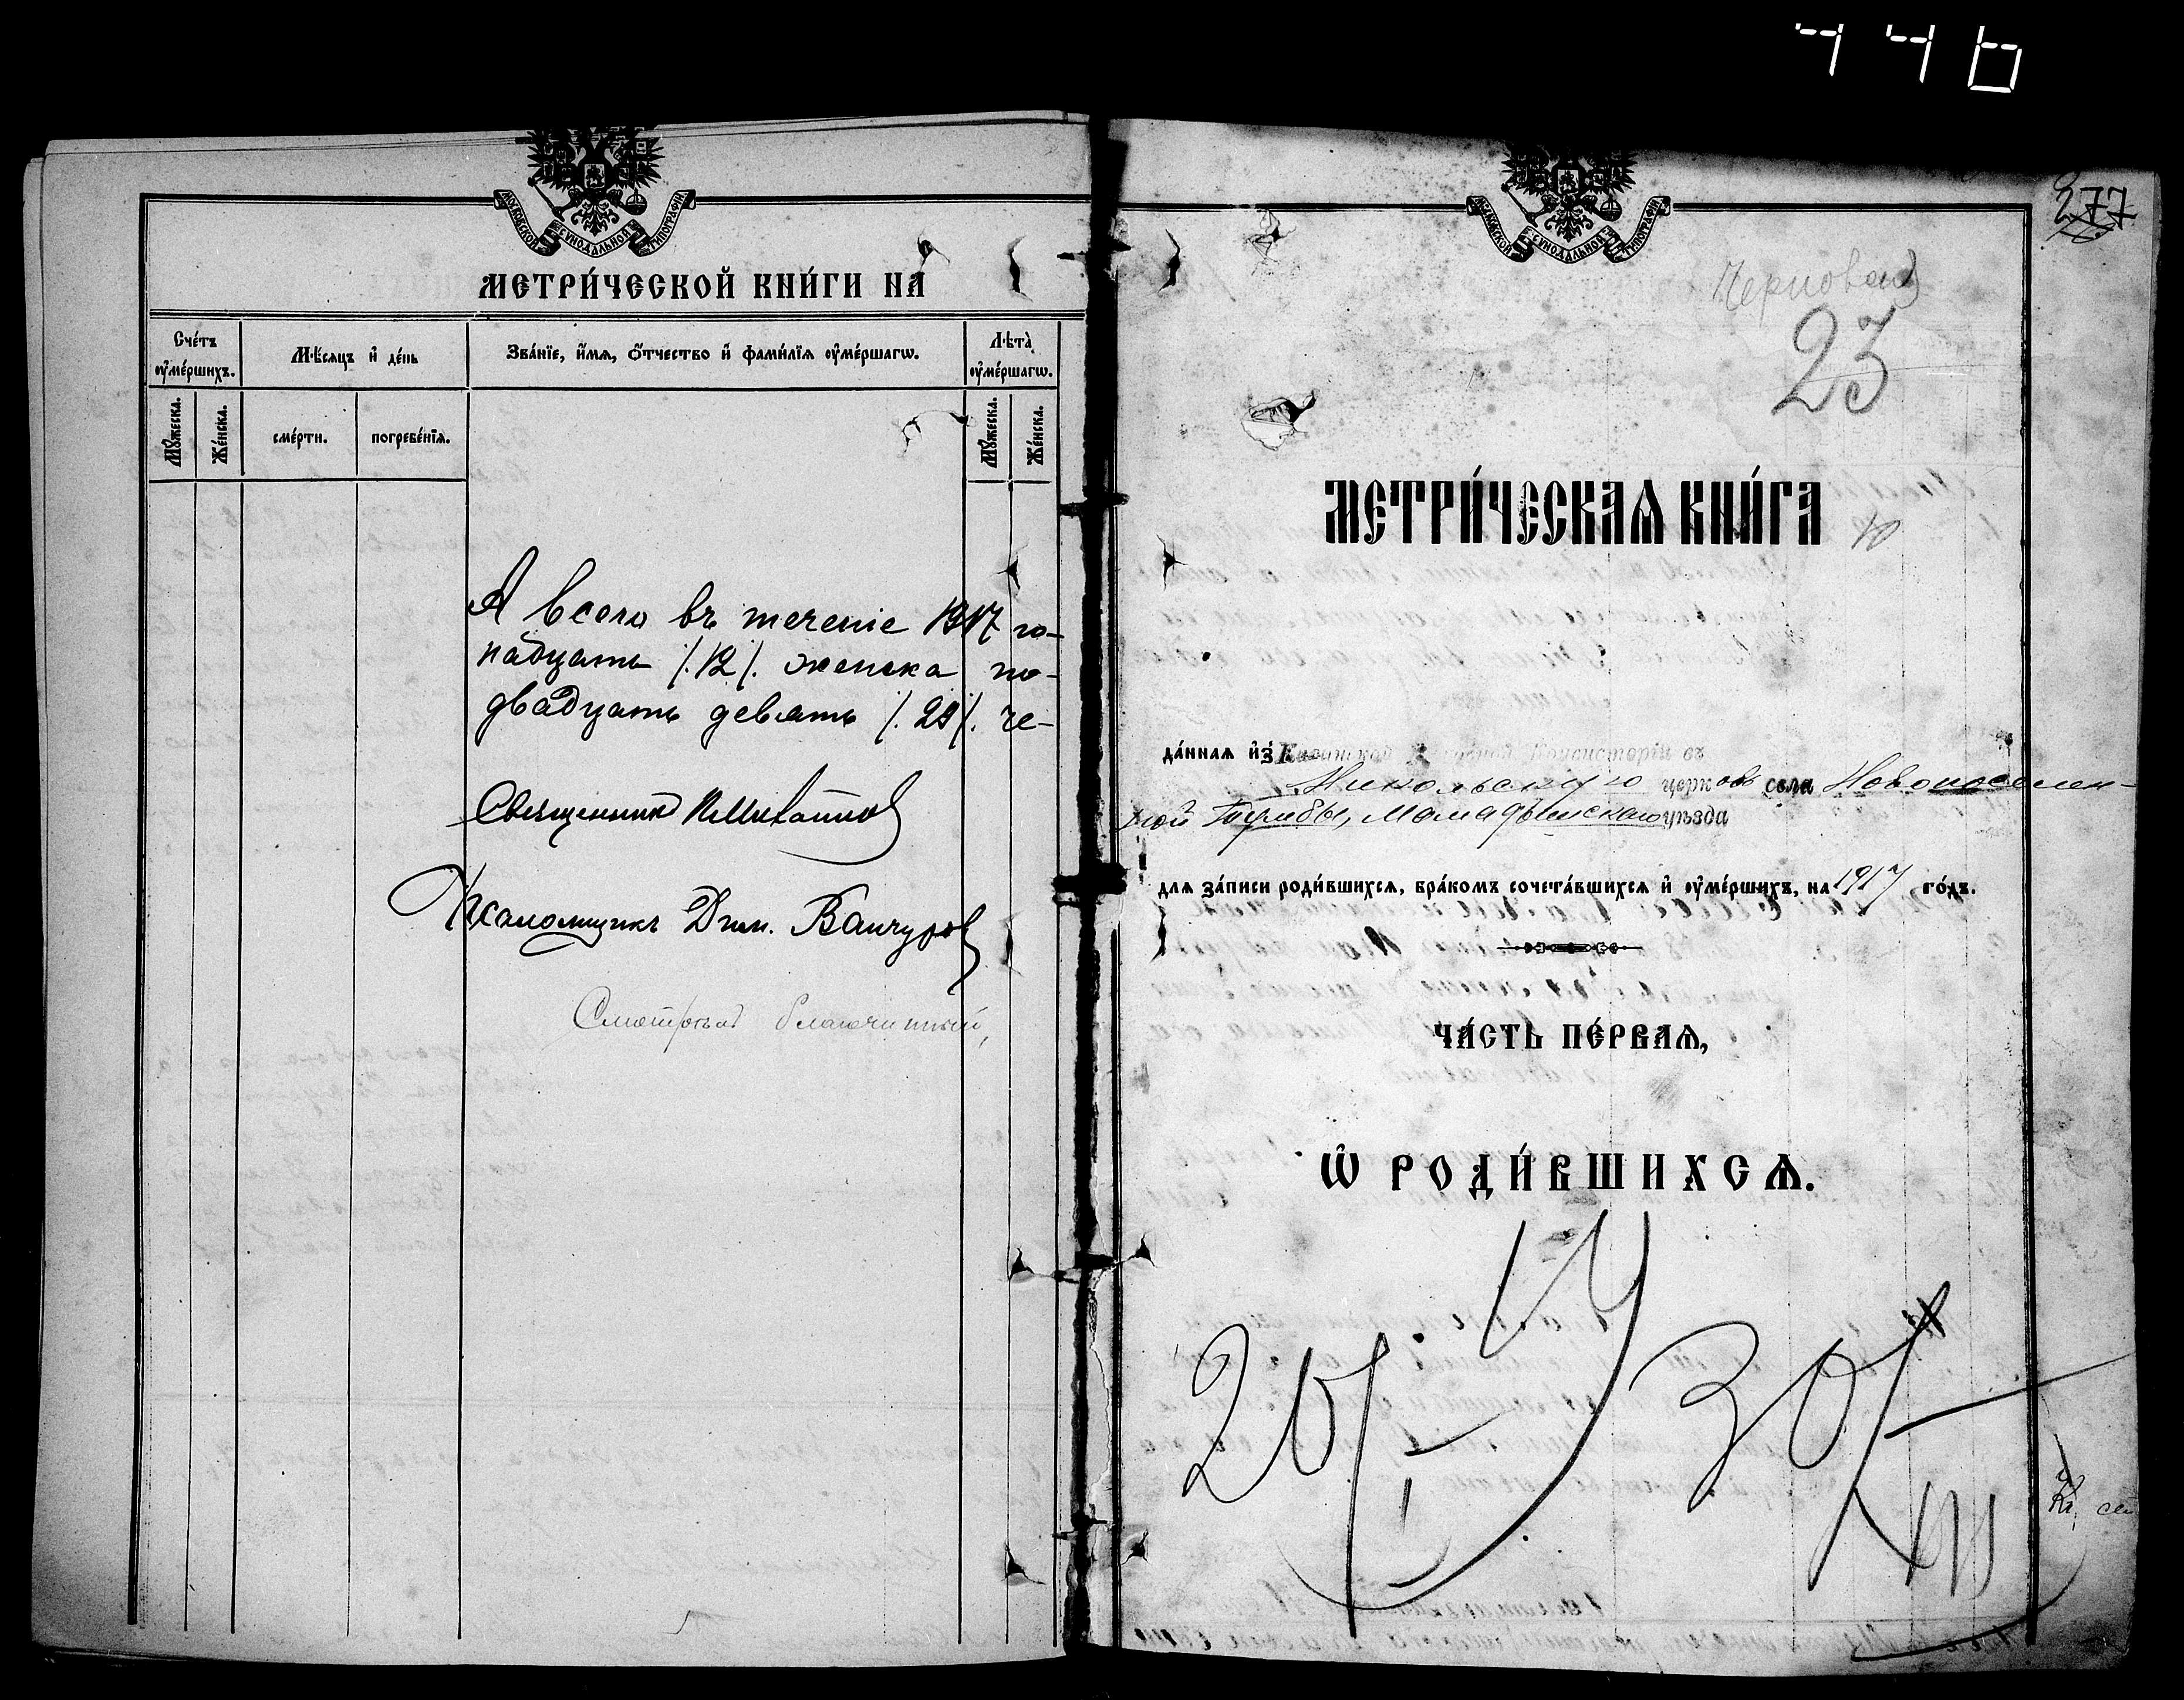 446
МОСКОВСКОЙ СѴНОДАЛЬНОЙ ТИПОГРАФІИ
МЕТРИ́ЧЕСКОЙ КНИ́ГИ НА
Сче́тъ ᲂу҆ме́ршихъ.
Мѣ́сяцъ и҆ де́нь
Зва́нїе, и҆́мя, ѻ҆́тчество и҆ фами́лїя ᲂу҆ме́ршагѡ.
Лѣ́та ᲂу҆ме́ршагѡ.
Мꙋ́жеска.
Же́нска.
сме́рти.
погребе́нїя.
Мꙋ́жеска.
Же́нска.
А всего въ теченіе 1917 го-
надцать /.12/. женска по-
двадцать девять /.29/. че-
Священникъ
Псаломщикъ Дим. Ванчуров
Смотрѣлъ благочинный,
МОСКОВСКОЙ СѴНОДАЛЬНОЙ ТИПОГРАФІИ
277
23
МЕТРИ́ЧЕСКАѦ КНИ́ГА
да́нная и҆з̾ Казанской Консисторіи въ
Никольскую церковь села Новопоселен-
ной Мамадышскаго уѣзда
для за́писи роди́вшихся, бра́комъ сочета́вшихся и҆ ᲂу҆ме́ршихъ, на 1917 го́дъ.
ЧА́СТЬ ПЕ́РВАѦ,
Ѡ҆ РОДИ́ВШИХСѦ.
20/I
30/